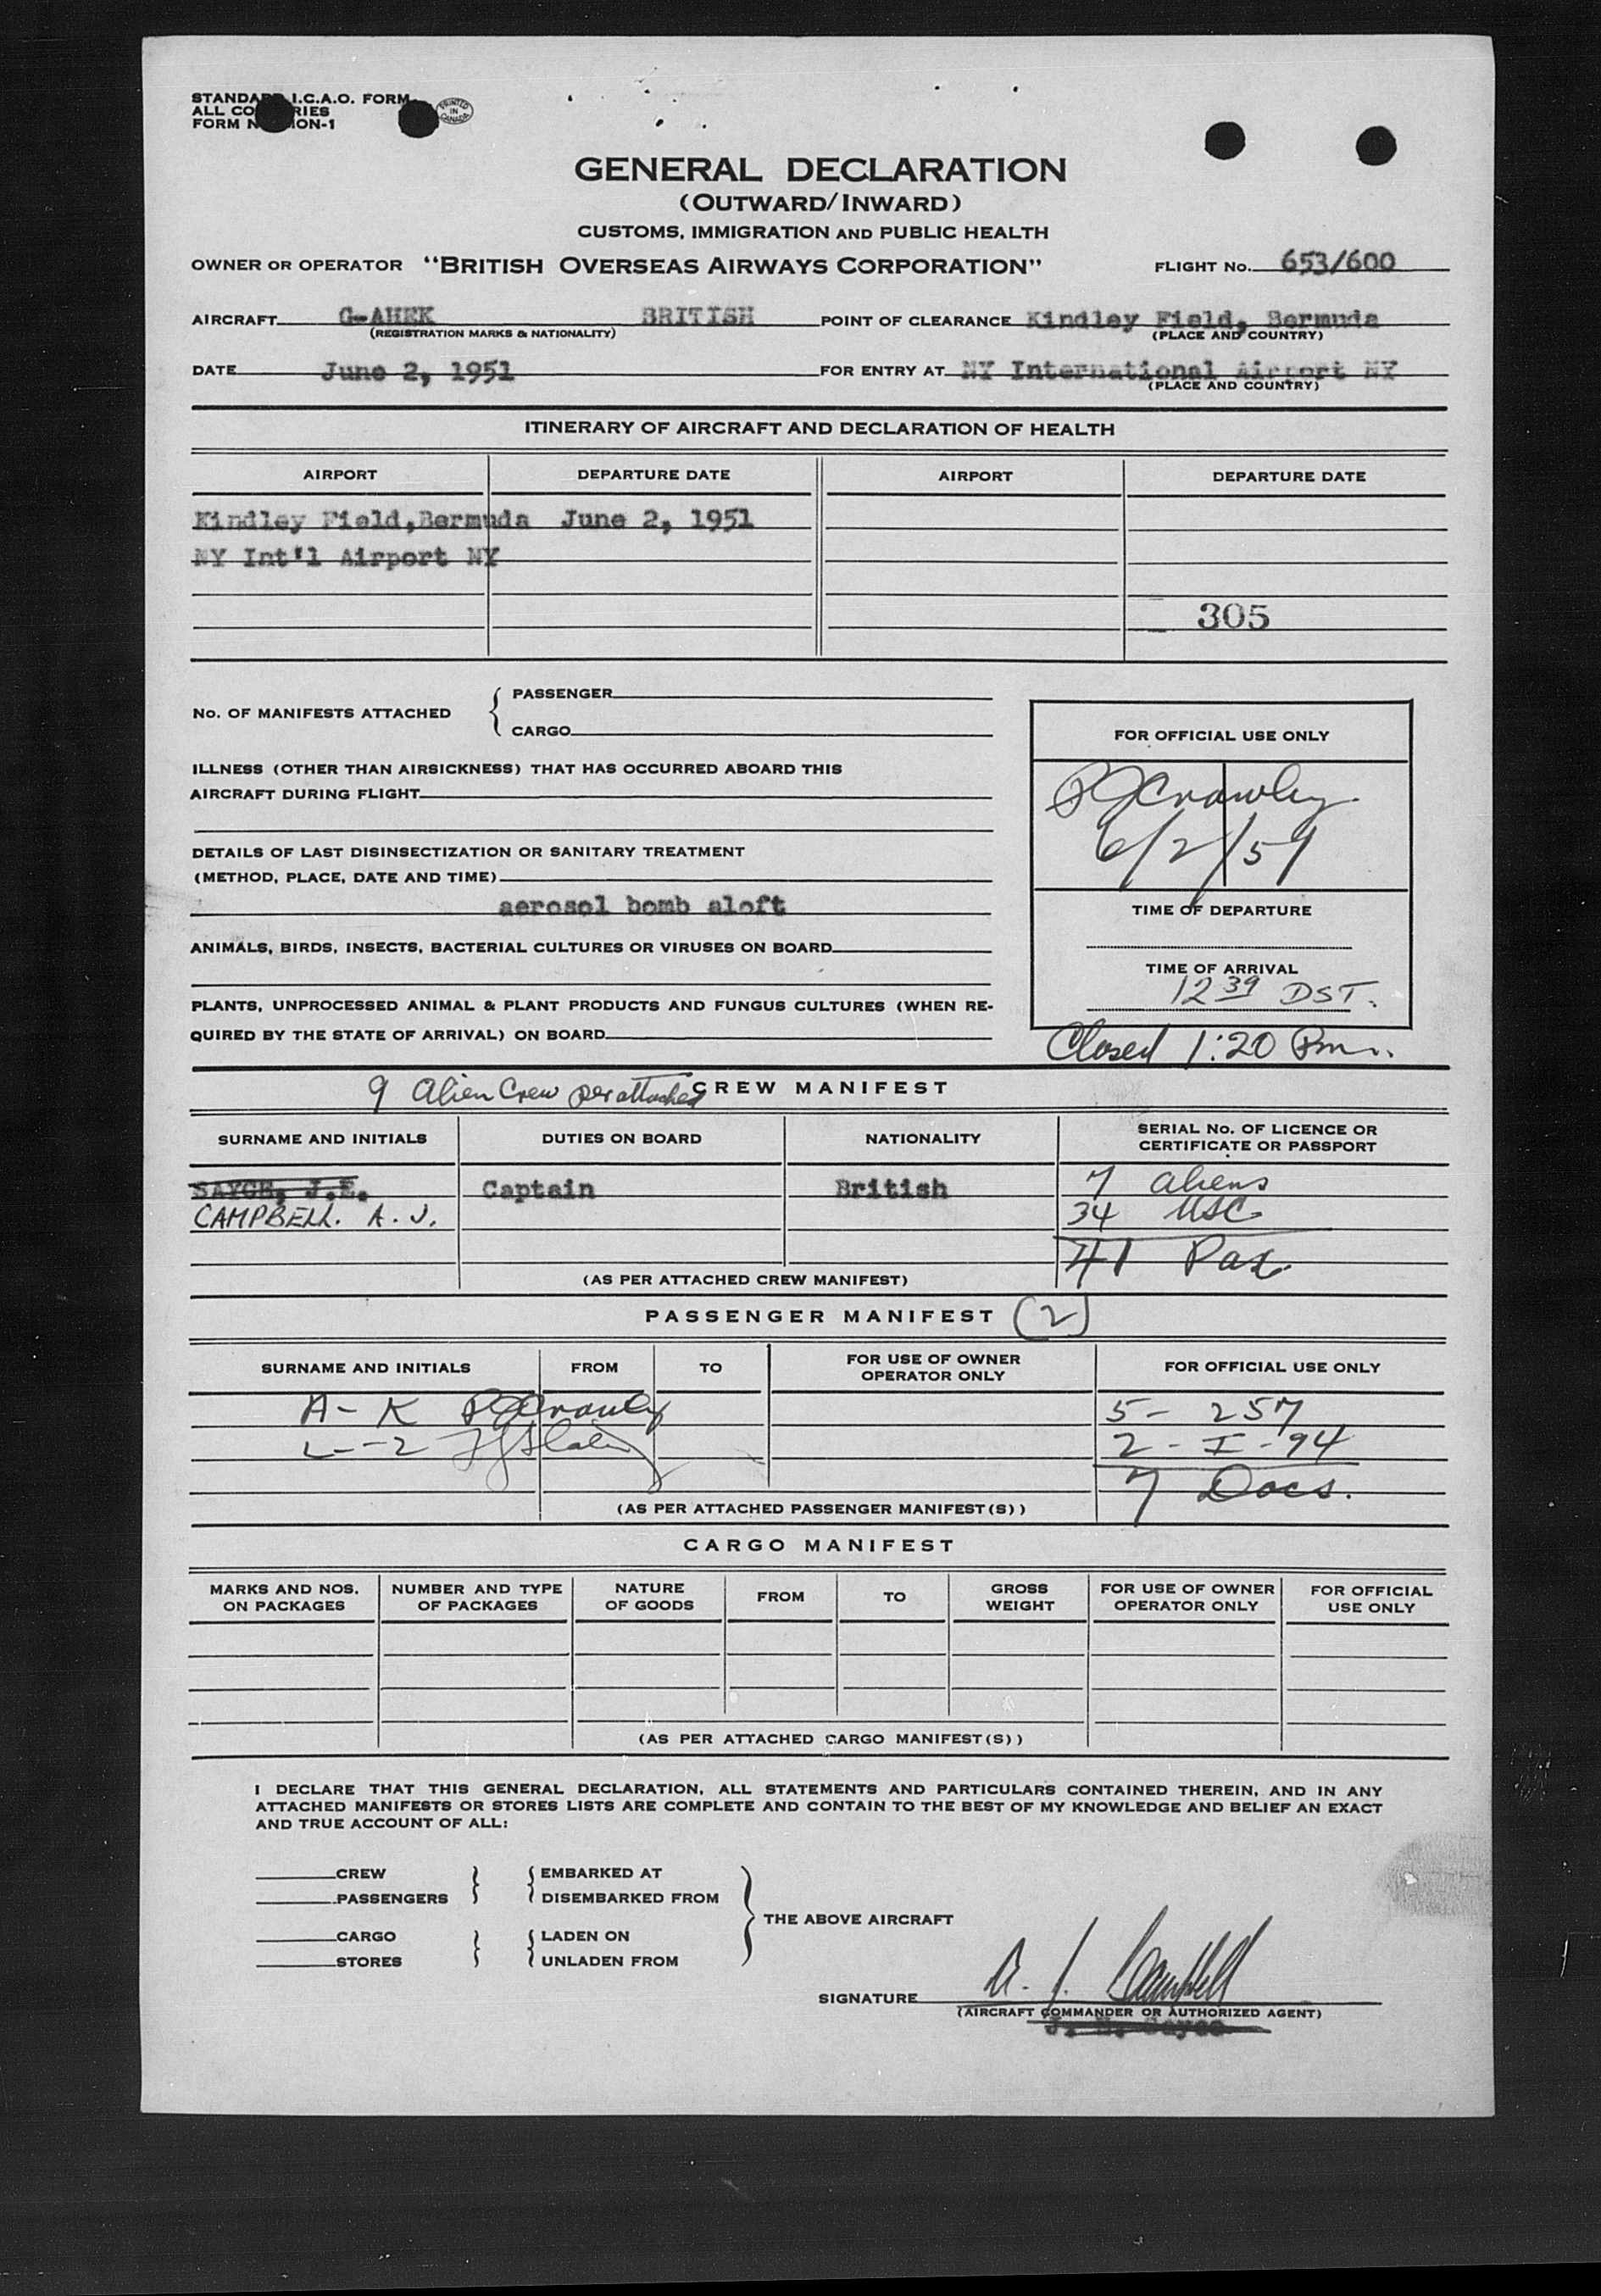 STANDARD I.C.A.O. FORM
ALL COUNTRIES
FORM N ION-1
PRINTED IN CANADA
GENERAL DECLARATION
(OUTWARD/INWARD)
CUSTOMS, IMMIGRATION AND PUBLIC HEALTH
OWNER OR OPERATOR "BRITISH OVERSEAS AIRWAYS CORPORATION" FLIGHT No. 653/600
AIRCRAFT G-AHEK BRITISH POINT OF CLEARANCE Kindley Field, Bermuda
(REGISTRATION MARKS & NATIONALITY) (PLACE AND COUNTRY)
DATE June 2, 1951 FOR ENTRY AT NY International Airport NY
(PLACE AND COUNTRY)
ITINERARY OF AIRCRAFT AND DECLARATION OF HEALTH
AIRPORT DEPARTURE DATE AIRPORT DEPARTURE DATE
Kindley Field,Bermuda June 2, 1951
NY Int'l Airport NY
305
No. OF MANIFESTS ATTACHED
PASSENGER
CARGO
FOR OFFICIAL USE ONLY
ILLNESS (OTHER THAN AIRSICKNESS) THAT HAS OCCURRED ABOARD THIS
AIRCRAFT DURING FLIGHT
Crawley
6/2/51
DETAILS OF LAST DISINSECTIZATION OR SANITARY TREATMENT
(METHOD, PLACE, DATE AND TIME)
aerosol bomb aloft
TIME OF DEPARTURE
ANIMALS, BIRDS, INSECTS, BACTERIAL CULTURES OR VIRUSES ON BOARD
TIME OF ARRIVAL
12 39 DST.
PLANTS, UNPROCESSED ANIMAL & PLANT PRODUCTS AND FUNGUS CULTURES (WHEN RE-
QUIRED BY THE STATE OF ARRIVAL) ON BOARD
Closed 1:20 Pm.
9 Alien Crew per attached CREW MANIFEST
SURNAME AND INITIALS DUTIES ON BOARD NATIONALITY SERIAL No. OF LICENCE OR
CERTIFICATE OR PASSPORT
SAYCE, J.E. Captain British 7 aliens
CAMPBELL. A. J. 34 USC
41 Pax.
(AS PER ATTACHED CREW MANIFEST)
PASSENGER MANIFEST (2)
SURNAME AND INITIALS FROM TO FOR USE OF OWNER
OPERATOR ONLY FOR OFFICIAL USE ONLY
A- K Crawley 5- 257
L--2 2 - I - 94
7 Docs.
(AS PER ATTACHED PASSENGER MANIFEST(S))
CARGO MANIFEST
MARKS AND NOS. ON PACKAGES NUMBER AND TYPE OF PACKAGES NATURE OF GOODS FROM TO GROSS WEIGHT FOR USE OF OWNER OPERATOR ONLY FOR OFFICIAL USE ONLY
(AS PER ATTACHED CARGO MANIFEST(S))
I DECLARE THAT THIS GENERAL DECLARATION, ALL STATEMENTS AND PARTICULARS CONTAINED THEREIN, AND IN ANY
ATTACHED MANIFESTS OR STORES LISTS ARE COMPLETE AND CONTAIN TO THE BEST OF MY KNOWLEDGE AND BELIEF AN EXACT
AND TRUE ACCOUNT OF ALL:
CREW EMBARKED AT
PASSENGERS DISEMBARKED FROM
THE ABOVE AIRCRAFT
CARGO LADEN ON
STORES UNLADEN FROM
SIGNATURE A. J. Campbell
(AIRCRAFT COMMANDER OR AUTHORIZED AGENT)
J. E. Sayce